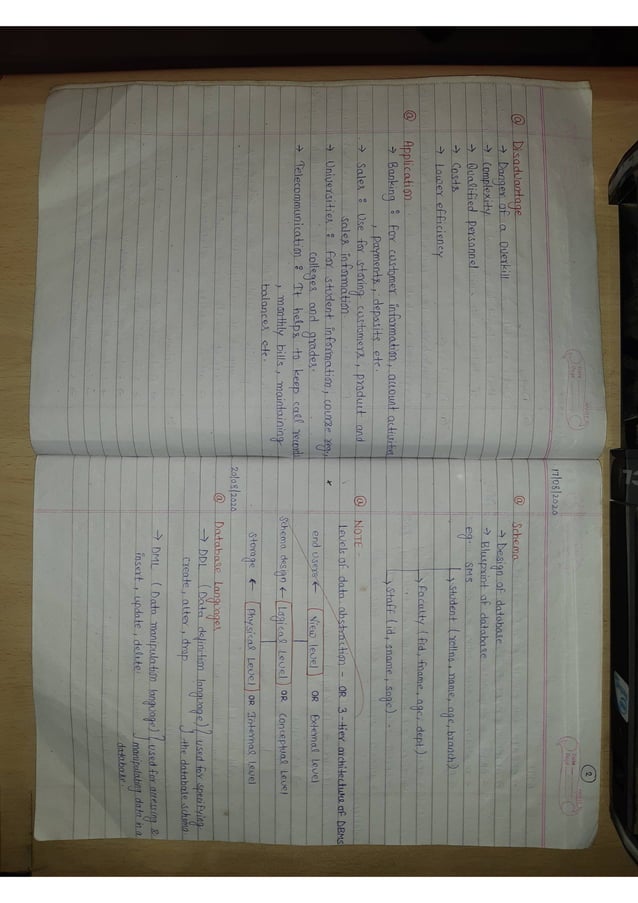 @ Disadvantage
→ Danger of a Overkill
→ Complexity
→ Qualified personnel
→ Costs
→ Lower efficiency
@ Application
→ Banking : For customer information, account activities
, payments, deposits etc.
→ Sales : Use for storing customers, product and
sales information
→ Universities : For student information, course reg,
colleges and grades.
→ Telecommunication : It helps to keep call records
, monthly bills, maintaining
balances etc.
2
17/08/2020
@ Schema
→ Design of database
→ Blueprint of database
eg. SMS
→ Student (rollno, name, age, branch)
→ Faculty (fid, fname, age, dept)
→ Staff (id, sname, sage).
@ NOTE -
Levels of data abstraction - OR 3-tier architecture of DBMS
end users ← View level OR External level
schema design ← Logical Level OR Conceptual Level
storage ← Physical Level OR Internal level
20/08/2020
@ Database Languages
→ DDL (Data definition language) } used for specifying
create, alter, drop } the database schema
→ DML (Data manipulation language) } used for accessing &
insert, update, delete. } manipulating data in a
database.